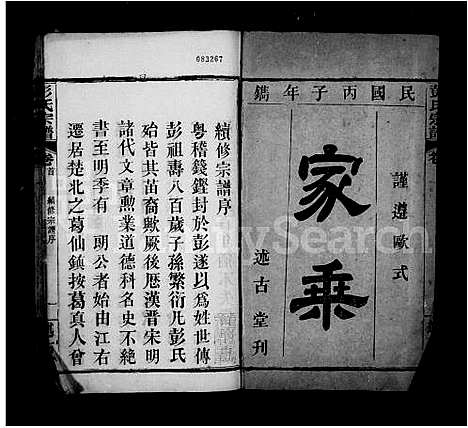 083267
民國丙子年鐫
謹遵歐式
家乘
述古堂刊
彭氏宗譜
卷
續修宗譜序
粵稽籛鏗封於彭遂以爲姓世傳
彭祖壽八百歲子孫繁衍凡彭氏
殆皆其苗裔歟厥後歷漢晋宋明
諸代文章勲業道德科名史不絶
書至明季有 朝公者始由江右
遷居楚北之葛仙鎮按葛真人曾
彭氏宗譜
卷首
續修宗譜序